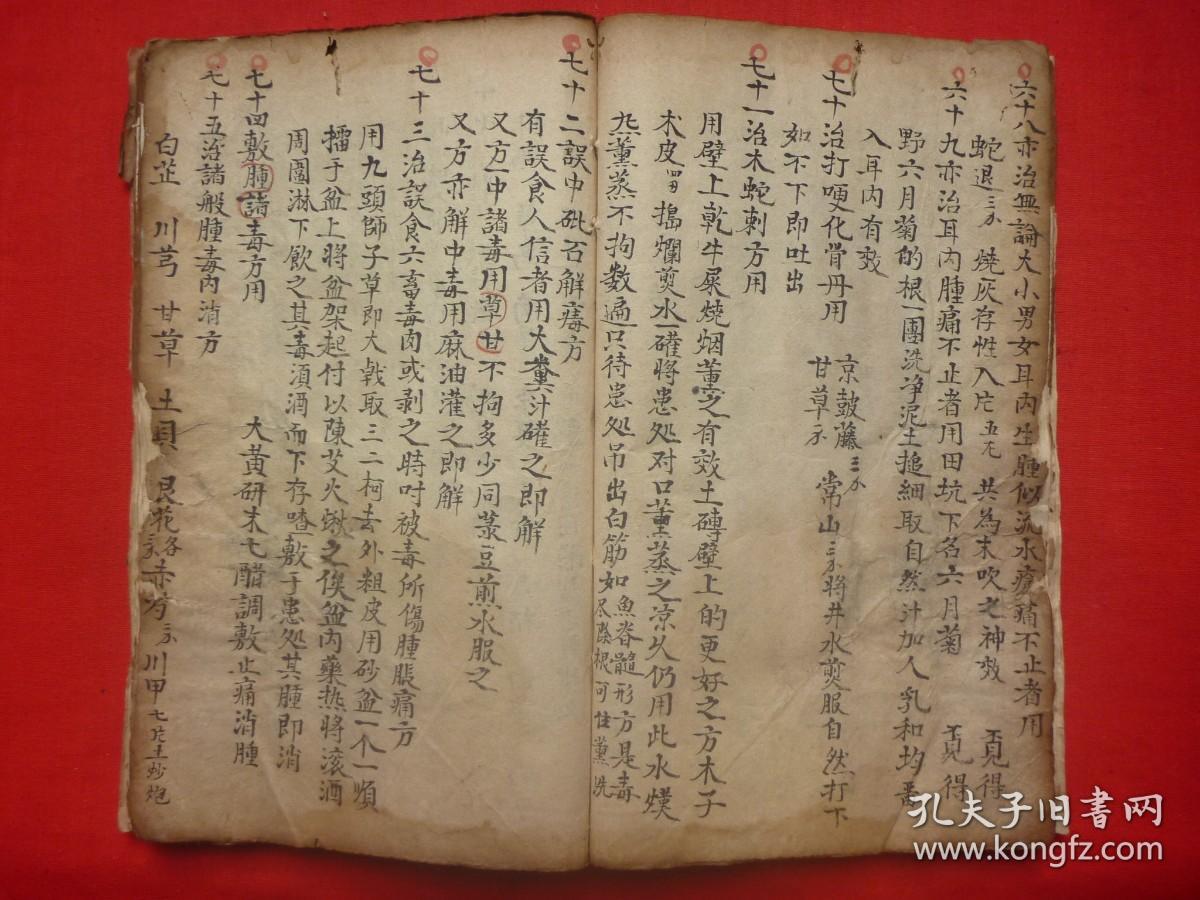 六十八亦治無論大小男女耳內生腫似流水疼痛不止者用
蛇退三分 燒灰存性入片五 共為末吹之神效 覓得
六十九亦治耳內腫痛不止者用田坑下名六月菊 覓得
野六月菊的根一團洗净泥土搥細取自然汁加人乳和均番
入耳內有效
七十治打哽化骨丹用 京鼓藤三分 甘草 常山 將井水煎服自然打下
如不下即吐出
七十一治木蛇刺方用
用壁上乾牛屎燒烟薰之有效土磚壁上的更好之方木子
木皮 搗爛煎水一礶將患処对口薰蒸之凉久仍用此水煠
烝薰蒸不拘数遍只待患処吊出白筋如魚脊髓形方是毒
尽 根可住薰洗
七十二誤中砒石解毒方
有誤食人信者用大糞汁礶之即解
又方一中諸毒用草甘不拘多少同菉豆煎水服之
又方亦解中毒用麻油灌之即解
七十三治誤食六畜毒肉或剥之時吋被毒所傷腫脹痛方
用九頭師子草即大戟取三二柯去外粗皮用砂盆一个順
擂于盆上將盆架起付以陳艾火 之俟盆內藥热將滾酒
周圍淋下飲之其毒須酒而下存喳敷于患処其腫即消
七十四敷腫諸毒方用 大黃研末七醋調敷止痛消腫
七十五治諸般腫毒內消方
白芷 川芎 甘草 土貝 艮花各 赤芍 川甲七片土炒炮
孔夫子旧书网
www.kongfz.com